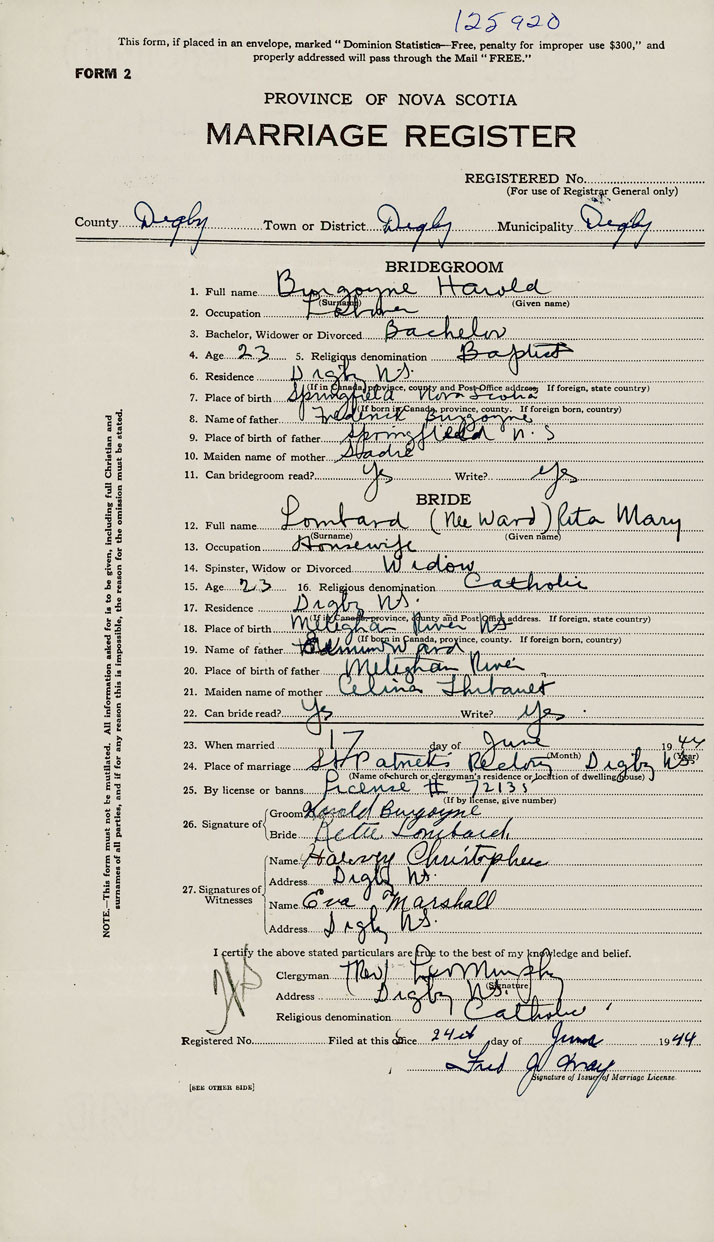 125920
This form, if placed in an envelope, marked "Dominion Statistics—Free, penalty for improper use $300," and
properly addressed will pass through the Mail "FREE."
FORM 2
PROVINCE OF NOVA SCOTIA
MARRIAGE REGISTER
REGISTERED No.
(For use of Registrar General only)
County Digby Town or District Digby Municipality Digby
BRIDEGROOM
1. Full name Burgoyne Harold
(Surname) (Given name)
2. Occupation Labourer
3. Bachelor, Widower or Divorced Bachelor
4. Age 23 5. Religious denomination Baptist
6. Residence Digby N.S.
(If in Canada, province, county and Post Office address. If foreign, state country)
7. Place of birth Springfield Nova Scotia
(If born in Canada, province, county. If foreign born, country)
8. Name of father Frederick Burgoyne
9. Place of birth of father Springfield N.S
10. Maiden name of mother
11. Can bridegroom read? Yes Write? Yes
BRIDE
12. Full name Lombard (Nee Ward) Rita Mary
(Surname) (Given name)
13. Occupation Housewife
14. Spinster, Widow or Divorced Widow
15. Age 23 16. Religious denomination Catholic
17. Residence Digby N.S.
(If in Canada, province, county and Post Office address. If foreign, state country)
18. Place of birth Meteghan River N.S
(If born in Canada, province, county. If foreign born, country)
19. Name of father Ward
20. Place of birth of father Meteghan River
21. Maiden name of mother Celina Thibault
22. Can bride read? Yes Write? Yes
23. When married 17 day of June 1944
(Month) (Year)
24. Place of marriage St Patrick's Rectory Digby N.S.
(Name of church or clergyman's residence or location of dwelling house)
25. By license or banns License # 72135
(If by license, give number)
26. Signature of
Groom Harold Burgoyne
Bride Lombard
27. Signatures of Witnesses
Name Harvey Christopher
Address Digby N.S.
Name Eva Marshall
Address Digby N.S.
I certify the above stated particulars are true to the best of my knowledge and belief.
Clergyman (Rev) Leo Murphy
(Signature)
Address Digby N.S.
Religious denomination Catholic
Registered No. Filed at this office 24th day of June 1944
Fred J
Signature of Issuer of Marriage License.
[SEE OTHER SIDE]
NOTE.—This form must not be mutilated. All information asked for is to be given, including full Christian and
surnames of all parties, and if for any reason this is impossible, the reason for the omission must be stated.